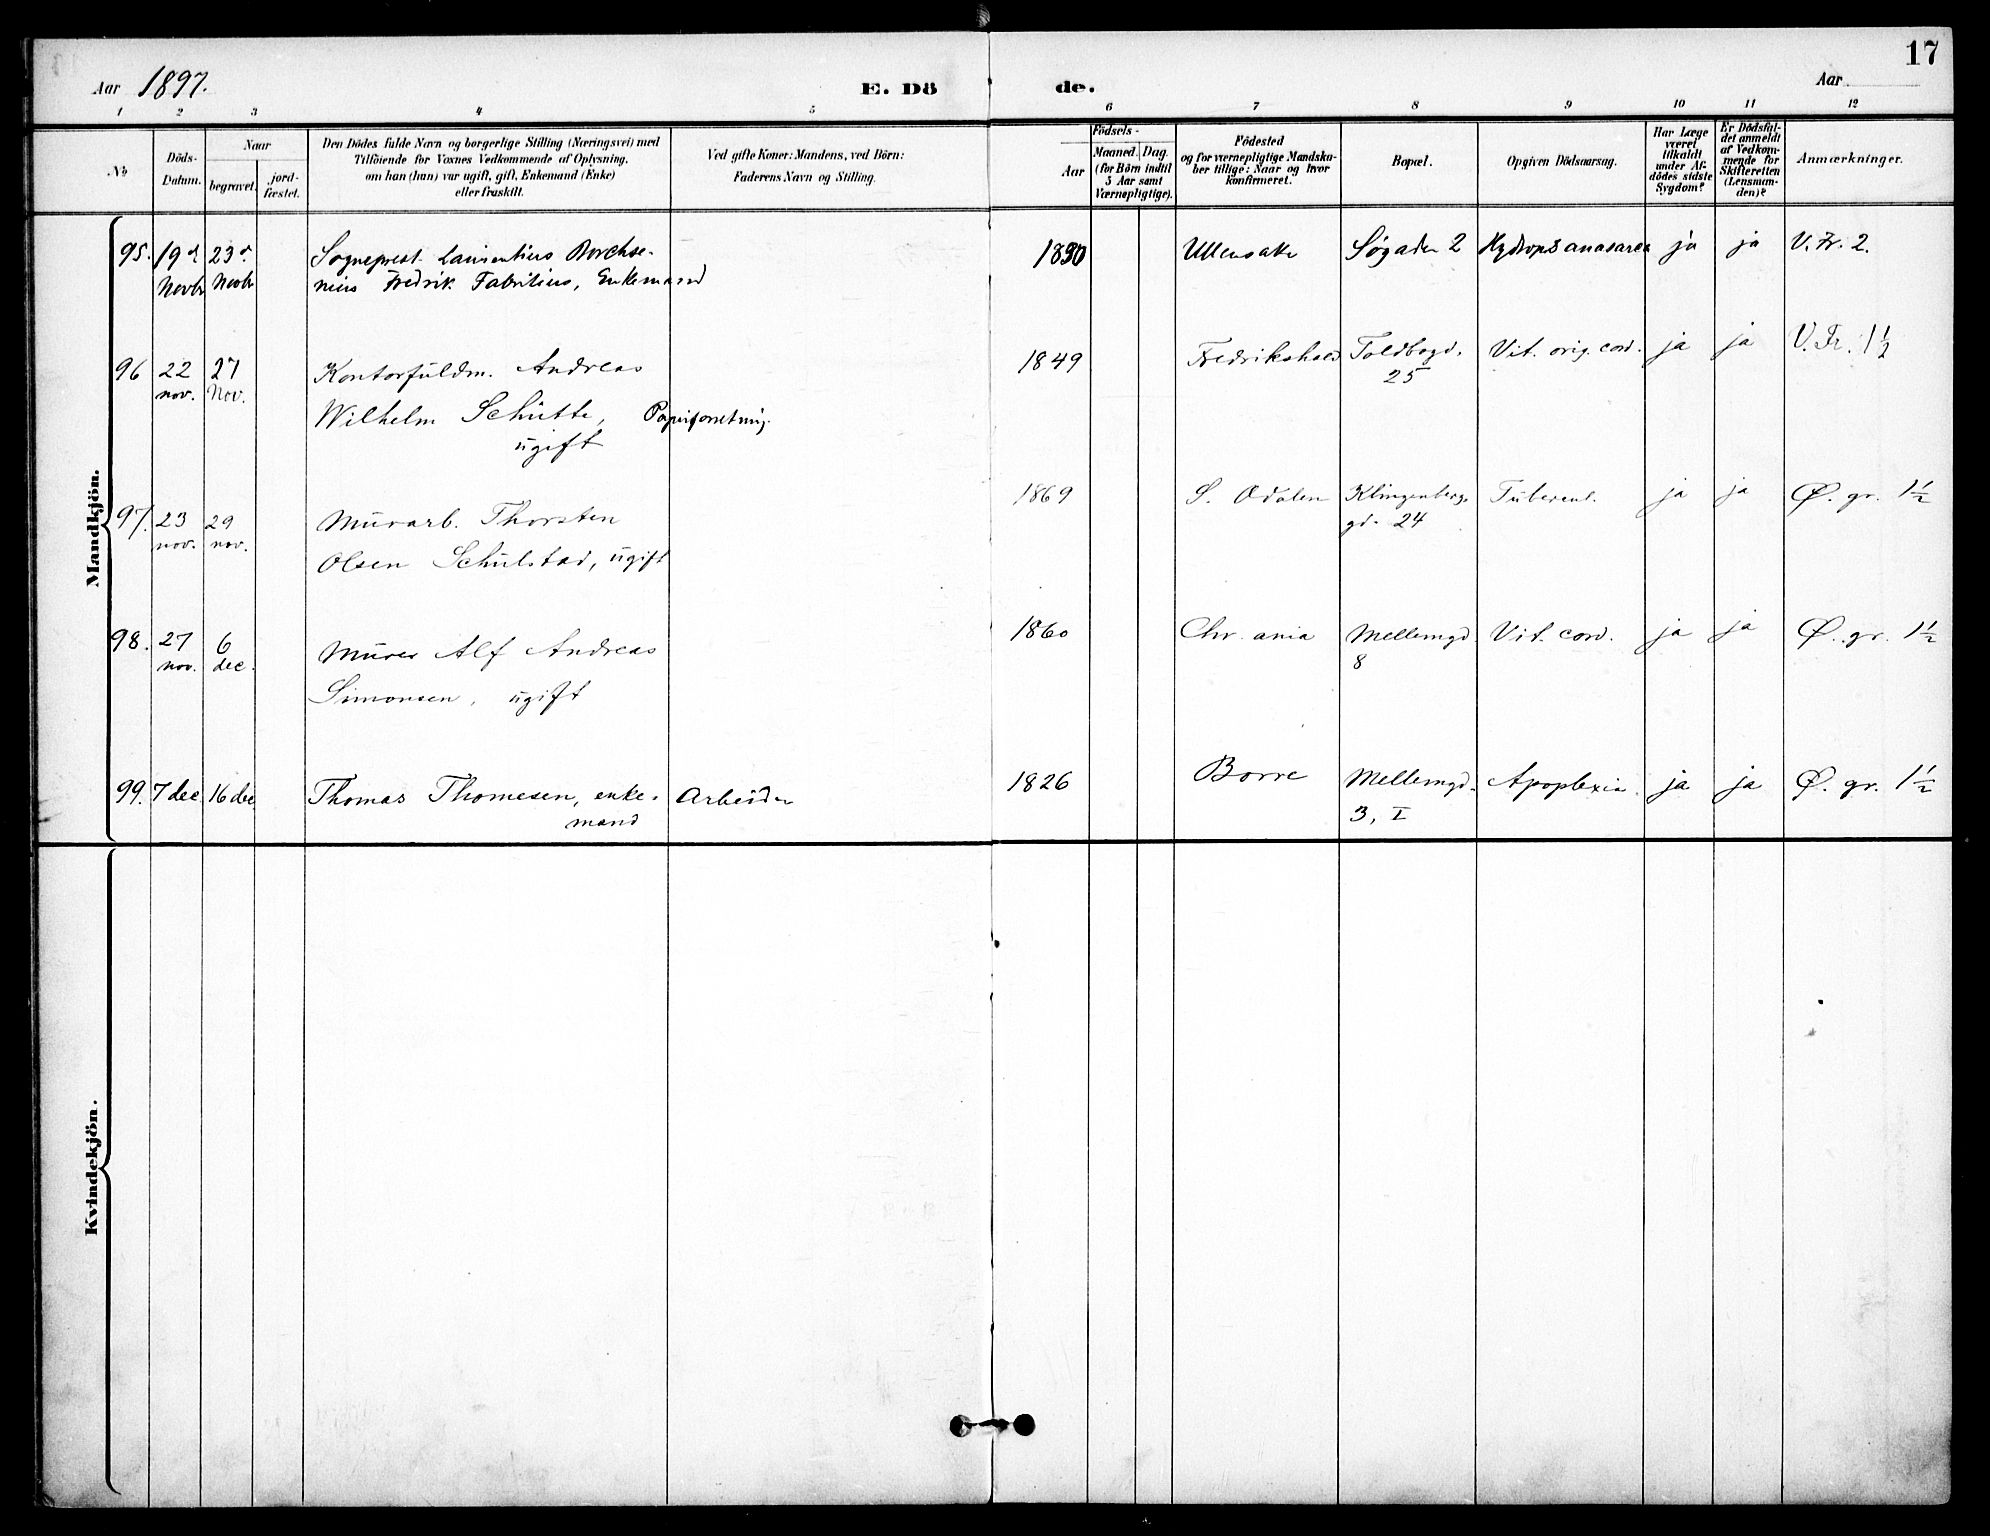 17
Aar 1897.
E. Dö
de.
Aar
1 2 3 4 5 6 7 8 9 10 11 12
No
Döds-
Datum.
Naar
begravet.
jord-
fæstet.
Den Dödes fulde Navn og borgerlige Stilling (Næringsvei) med
Tilföiende for Voxnes Vedkommende af Oplysning.
om han (hun) var ugift, gift, Enkemand (Enke)
eller fraskilt.
Ved gifte Koner: Mandens, ved Börn:
Faderens Navn og Stilling.
Födsels-
Aar
Maaned. Dag.
(for Börn indtil
5 Aar samt
Værnepligtige).
Födested
og for værnepligtige Mandska-
ber tillige: Naar og hvor
konfirmeret.
Bopæl.
Opgiven Dödsaarsag.
Har Læge
været
tilkaldt
under Af-
dödes sidste
Sygdom?
Er Dödsfal-
det anmeldt
af Vedkom-
mende for
Skifteretten
(Lensman-
den)?
Anmærkninger.
Mandkjön.
95. 19d 23d Sogneprest Laurentius Borchse- 1830 Ullensaker Søgaden 2 Hydrops anasarca ja ja V. Fr. 2.
Novbr Novbr nius Fredrik Fabritius, Enkemand
96 22 27 Kontorfuldm. Andreas 1849 Fredrikshald Toldbogd. Vit. orig. cord. ja ja V. Fr. 1 1/2
nov. Nov. 25
Wilhelm Schütte, Papirforretning.
ugift
97. 23 29 Murarb. Thorsten 1869 S. Odalen Klingenberg- Tubercul. ja ja Ø. gr. 1 1/2
nov. nov. gd. 24
Olsen Schulstad, ugift
98. 27 6 Murer Alf Andreas 1860 Chr. ania Mellemgd Vit. cord. ja ja Ø. gr. 1 1/2
nov. dec. 8
Simonsen, ugift
99. 7 dec. 16 dec Thomas Thomesen, enke- Arbeider 1826 Borre Mellemgd. Apoplexia. ja ja Ø. gr. 1 1/2
mand 3, I
Kvindekjön.